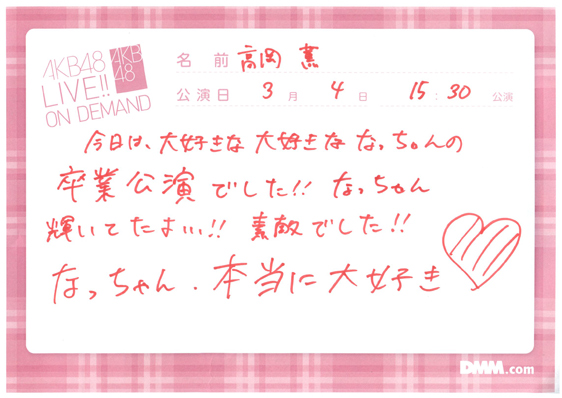 AKB48
LIVE!!
ON DEMAND
AKB
48
名前 高岡 薫
公演日 3月 4日 15:30 公演
今日は、大好きな大好きななっちゃんの
卒業公演でした!! なっちゃん
輝いてたよぃ!! 素敵でした!!
なっちゃん.本当に大好き
DMM.com